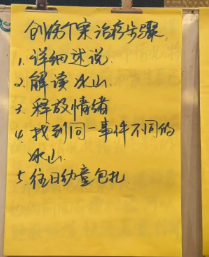 创伤个案治疗步骤
1. 详细述说
2. 解读冰山
3. 释放情绪
4. 找到同一事件不同的
冰山
5. 往日幼童包扎